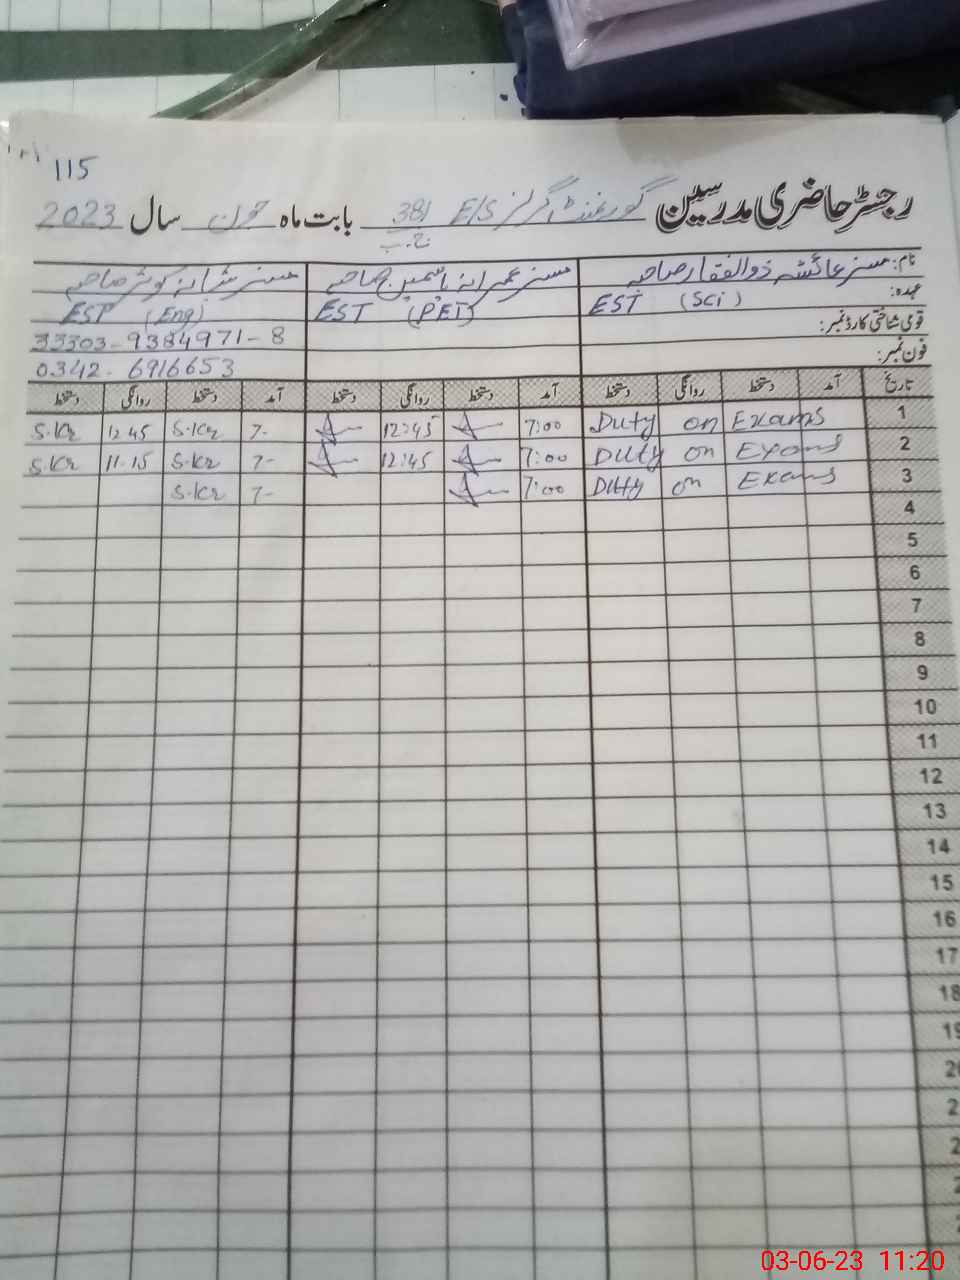 115
رجسٹر حاضری مدرسین گورنمنٹ گرلز E/S 381 بابت ماہ جون سال 2023
ج۔ب
نام: مسز عائشہ ذوالفقار صاحبہ مسز عمرانہ یاسمین صاحبہ مسز شبانہ کوثر صاحبہ
عہدہ: EST (Sci) EST (PET) EST (Eng)
قومی شناختی کارڈ نمبر: 33303-9384971-8
فون نمبر: 0342-6916653
تاریخ آمد دستخط روانگی دستخط آمد دستخط روانگی دستخط آمد دستخط روانگی دستخط
S.Kr 12 45 S.Kr 7- 12:45 7:00 Duty on Exams 1
S.Kr 11-15 S.Kr 7- 12:45 7:00 Duty on Exams 2
S.Kr 7- 7:00 Duty on Exams 3
4
5
6
7
8
9
10
11
12
13
14
15
16
17
18
03-06-23 11:20